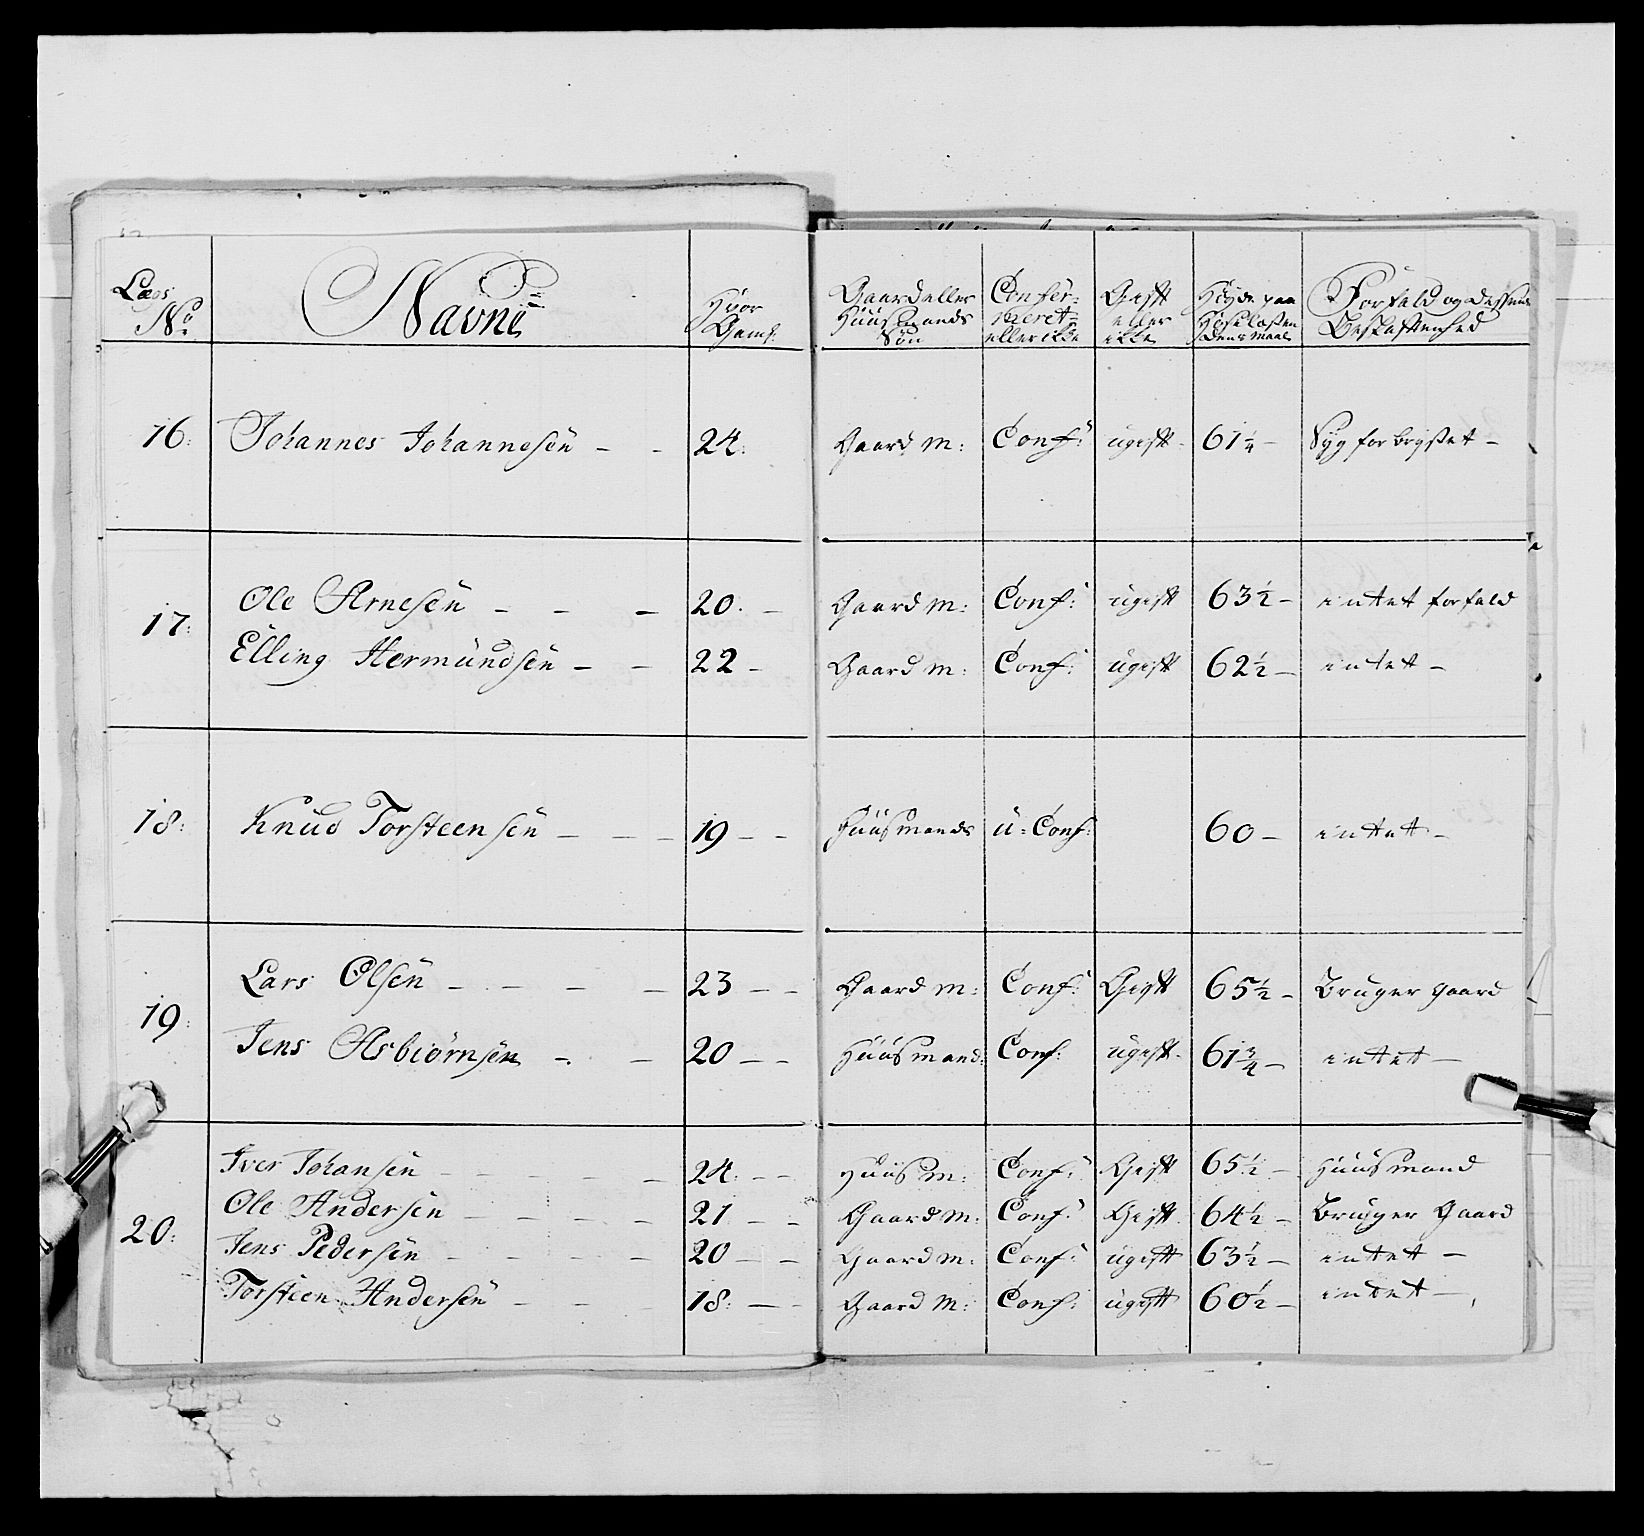 Læes No Navne Hvor Gaml: Gaard eller Huusmands Søn Confer= meret= eller ikke Gift eller ikke Høyde paa Hosesokken Maal Forfald og dessens Beskaffenhed
16: Johannes Johannesen - - 24: Gaard M: Conf: ugift - 61 1/4 - Syg for brystet -
17: Ole Arnesen - - - 20: - Gaard M: Conf: ugift 63 1/2 - intet forfald
Elling Hermundsen - - 22 - Gaard M: Conf: ugift 62 1/2 - intet -
18: Knud Torsteensen - - - 19 - - Huusmands u-Conf: 60 - intet -
19: Lars Olsen - - - - 23 - - Gaard M: Conf: Gift 65 1/2 - Bruger gaard
Jens Asbiørnsen - - 20 - - Huusmand: Conf: ugift - 61 3/4 - intet -
20: Iver Johansen - - - - 24: - - Huusm: Conf: Gift 65 1/2 - Huusmand
Ole Andersen - - - - - 21 - - Gaard M: Conf: Gift 64 1/2 - Bruger Gaard
Jens Pedersen - - - - - 20 - - Gaard M: Conf: ugift 63 1/2 - intet -
Torsteen Andersen - - 18: - - Gaard M: Conf: ugift 60 1/2 - intet -